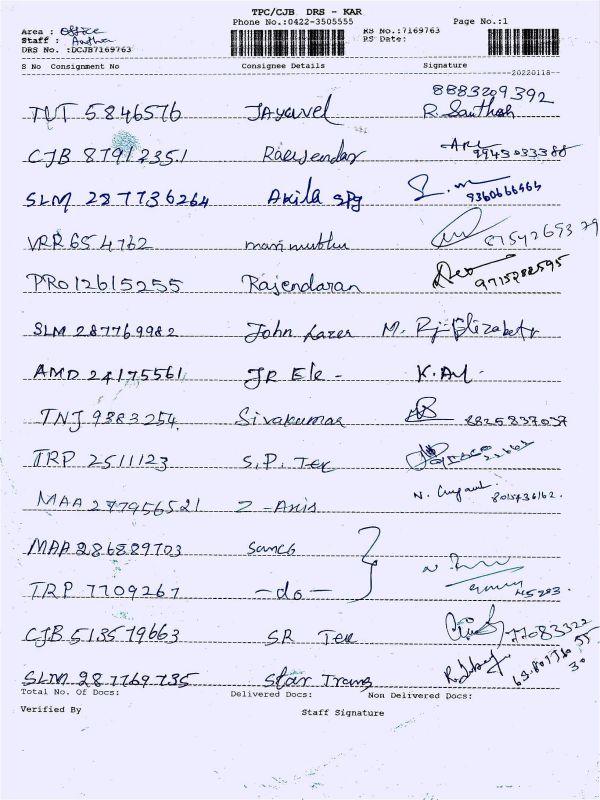 TPC/CJB DRS - KAR
Phone No.:0422-3505555 Page No.:1
Area : Office RS No.:7169763
Staff : RS Date:
DRS No. :DCJB7169763
S No Consignment No Consignee Details Signature
20220118
8883209392
TUT 5846576 JAyavel R. Santhosh
CJB 87912351 Rajendar 9943033388
SLM 287736264 Akila spg 9360666464
VRR 654762 marimuthu
PRO12615255 Rajendaran 9715282595
SLM 287769982 John Lazer M.
AMD 24175561 JR Ele -
TNJ 9383254 Sivakumar 8825837037
TRP 2511123 S.P. Tex
MAA 277956521 Z - Axis N.
MAA 286889703
TRP 7709267 -do-
CJB 513579663 SR Tex
SLM 287769735 Star Trans
Total No. Of Docs: Delivered Docs: Non Delivered Docs:
Verified By Staff Signature